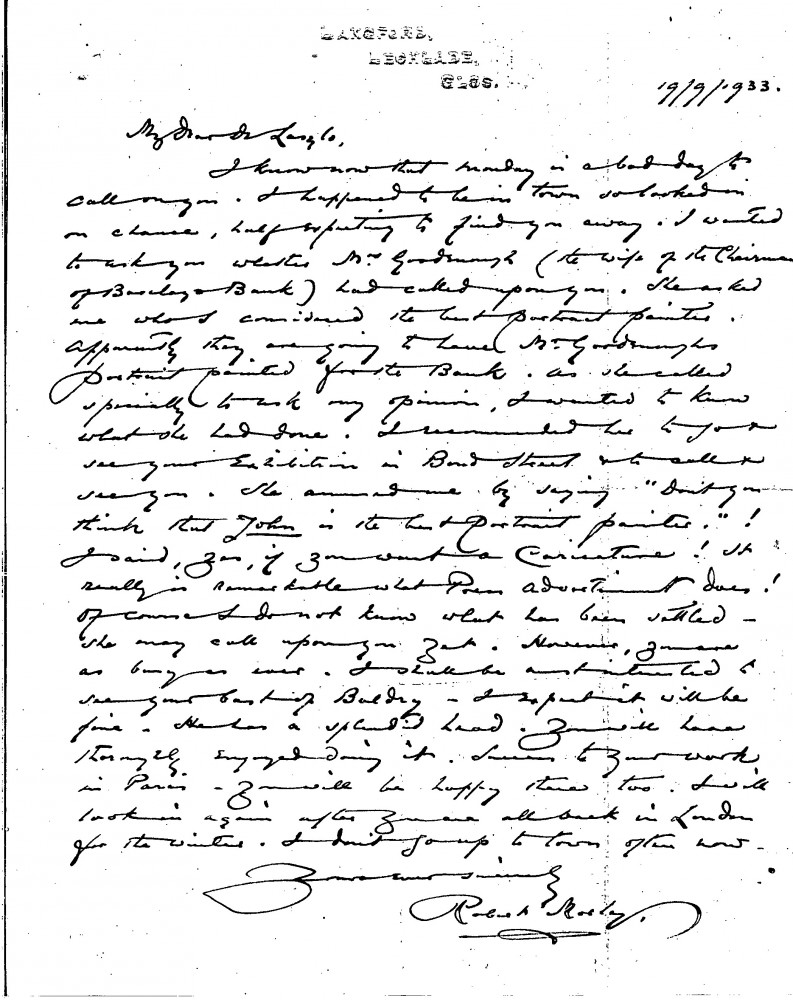 LANGFORD,
LECHLADE,
GLOS.
19/9/1933.
My dear de Laszlo,
I know now that Monday is a bad day to
call on you. I happened to be in town so looked in
on chance, half expecting to find you away. I wanted
to ask you whether Mrs Goodenough (the wife of the Chairman
of Barclays Bank) had called upon you. She asked
me who I considered the best portrait painter.
Apparently they are going to have Mr Goodenoughs
portrait painted for the Bank. As she called
specially to ask my opinion, I wanted to know
what she had done. I recommended her to go &
see your Exhibition in Bond Street & to call &
see you. She amused me by saying "Don't you
think that John is the best portrait painter."!
I said, yes, if you want a Caricature! It
really is remarkable what Press advertisement does!
Of course I do not know what has been settled –
she may call upon you yet. However, you are
as busy as ever. I shall be most interested to
see your bust of Baldry – I expect it will be
fine. He has a splendid head. You will have
thoroughly enjoyed doing it. Success to your work
in Paris – You will be happy there too. I will
look in again after you are all back in London
for the winter. I don't go up to town often now –
Yours ever sincerely
Robert Morley.